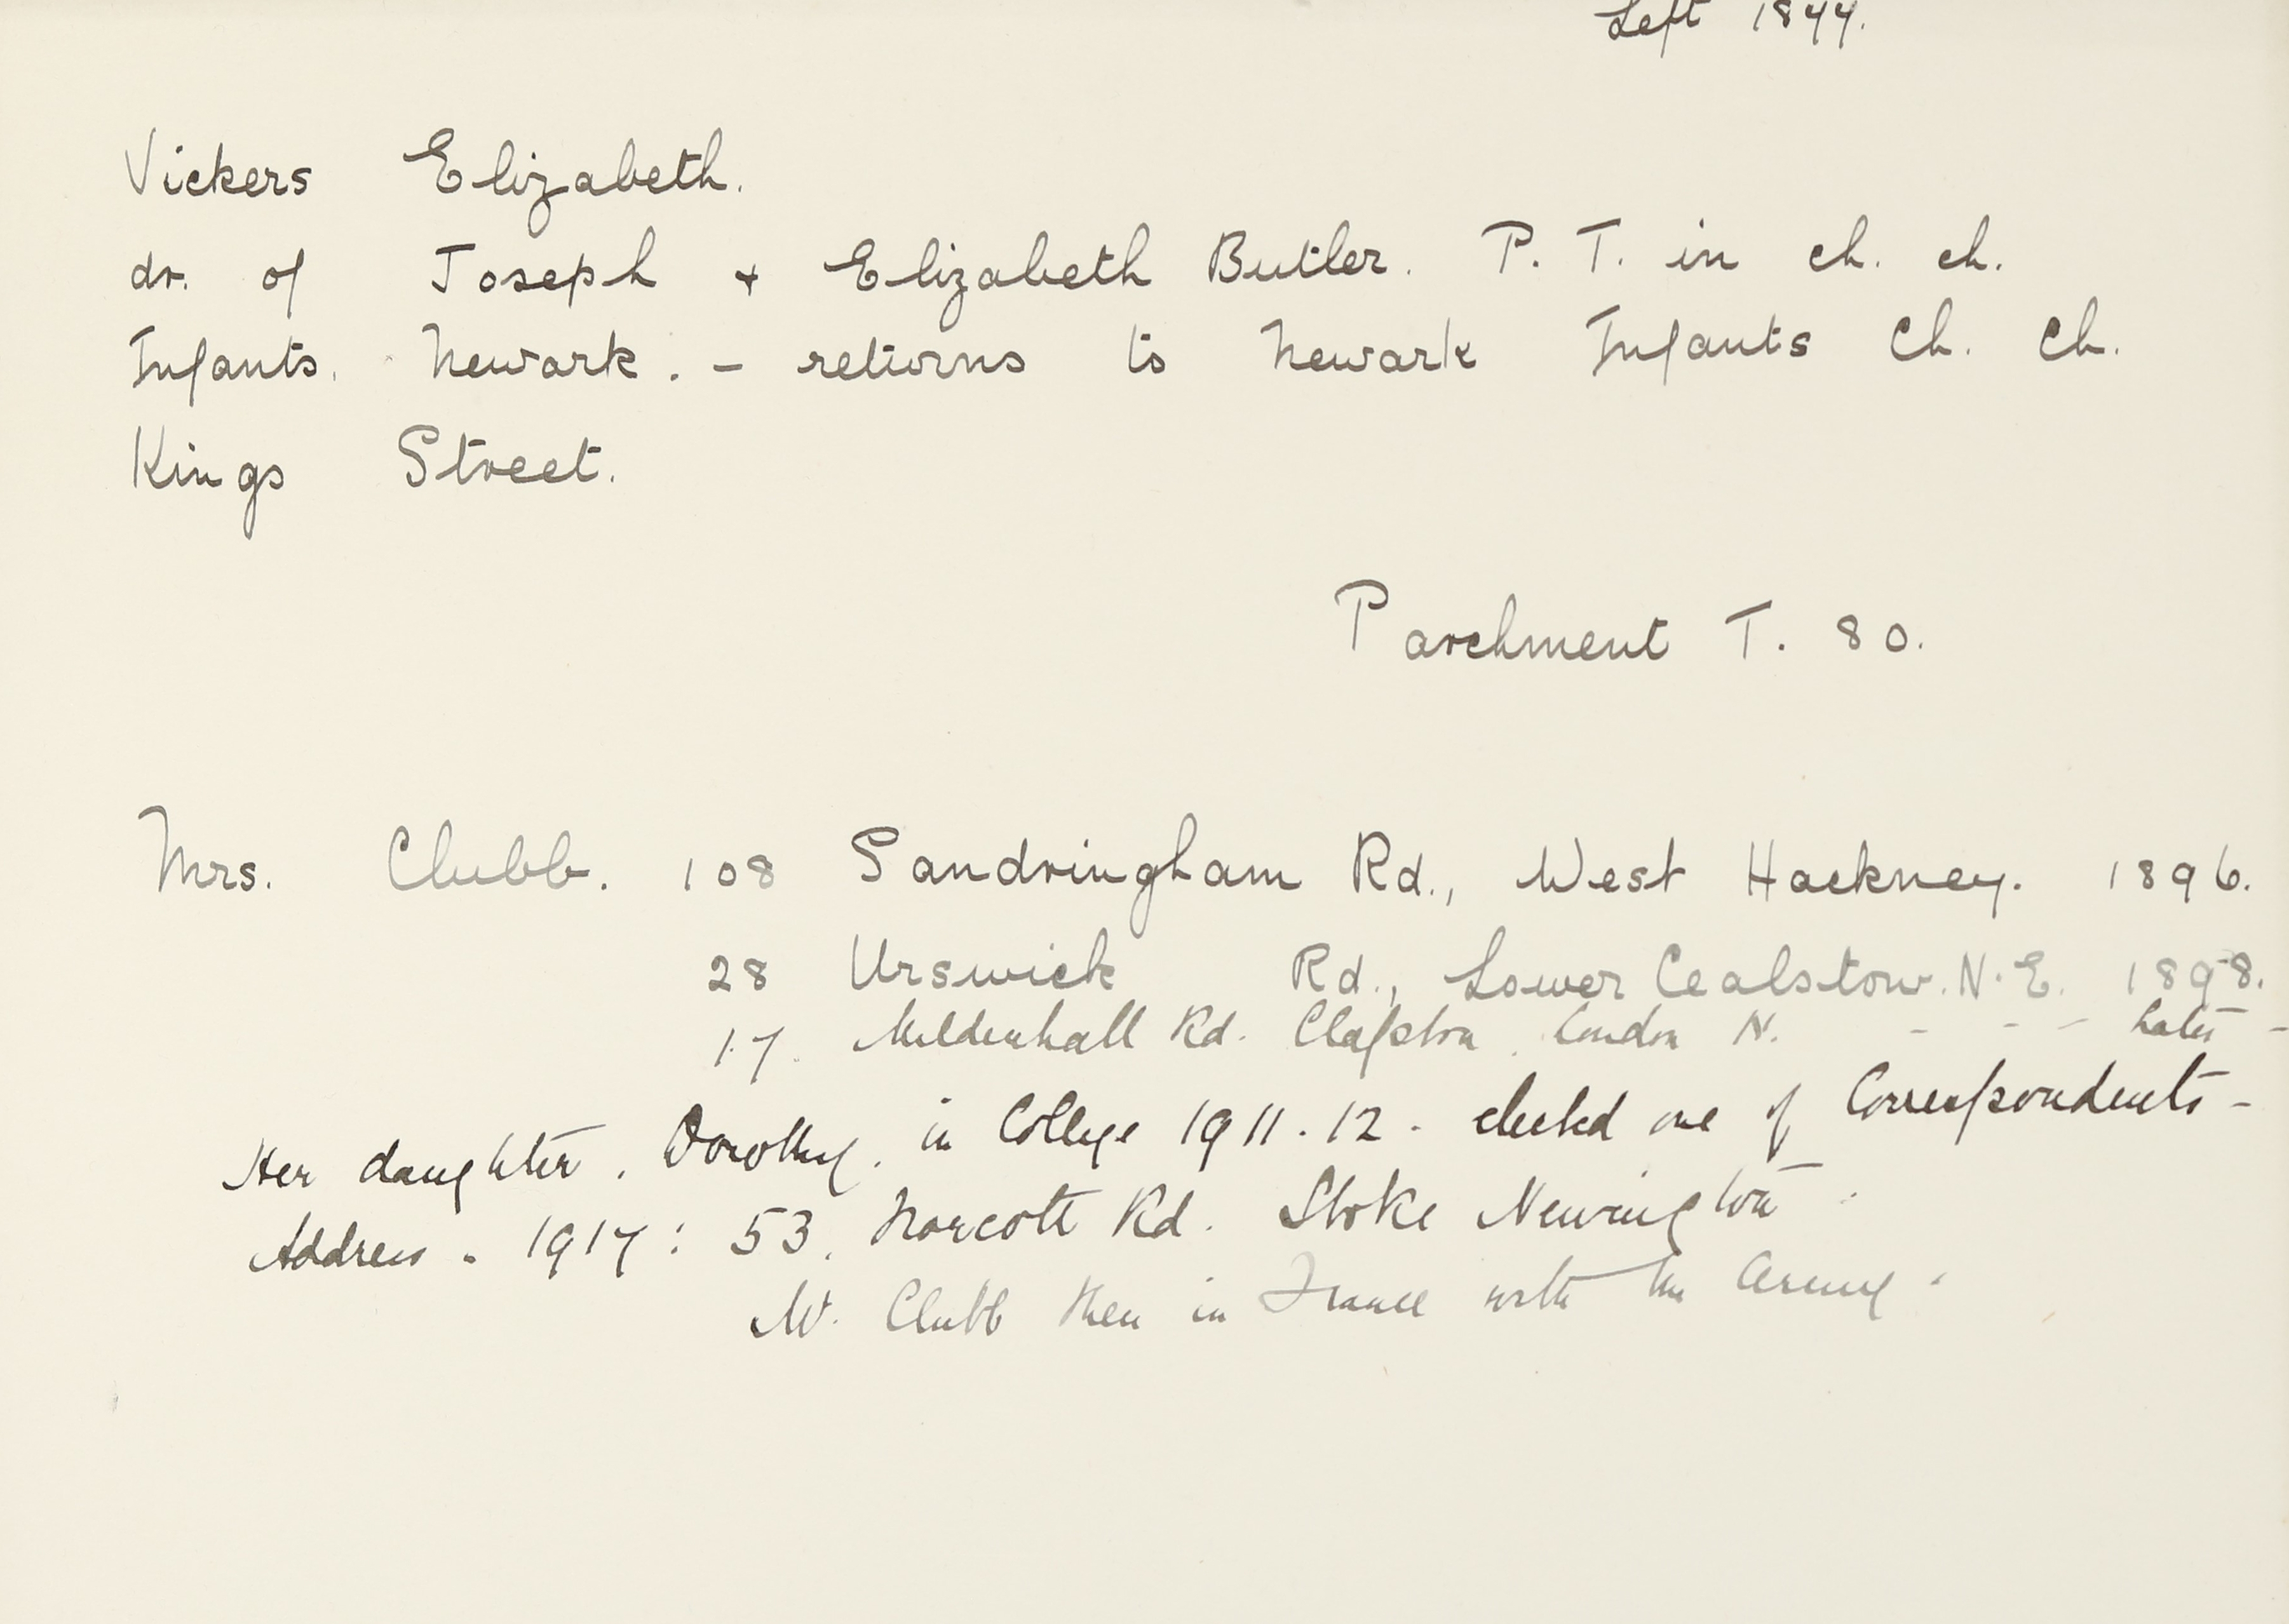 Left 1877.
Vickers Elizabeth.
dr. of Joseph + Elizabeth Butler. P. T. in ch. ch.
Infants. Newark. - returns to Newark Infants Ch. Ch.
Kings Street.
Parchment T. 80.
Mrs. Clubb. 108 Sandringham Rd., West Hackney. 1896.
28 Urswick Rd., Lower Cealstow. N. E. 1898.
17. Mildenhall Rd. Clapton. London N. - - - Later -
Her daughter. Dorothy. in College 1911-12. elected one of Correspondents -
Address - 1917: 53. Norcott Rd. Stoke Newington.
Mr. Clubb then in France with the Army.